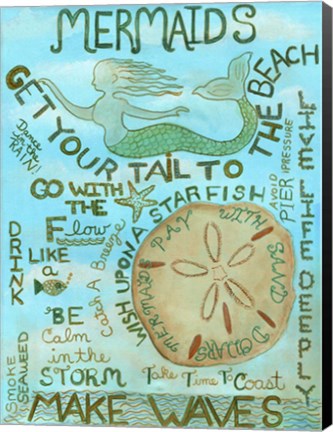 MERMAIDS
GET YOUR TAIL TO THE BEACH
Dance
in the
RAIN!
GO WITH
THE
Flow
WISH UPON A STARFISH
AVOID
PIER
PRESSURE
DRINK
LIKE
a
Catch A Breeze
PAY WITH SAND DOLLARS
BE
Calm
in the
STORM
SMOKE
SEAWEED
Take Time To Coast
MAKE WAVES